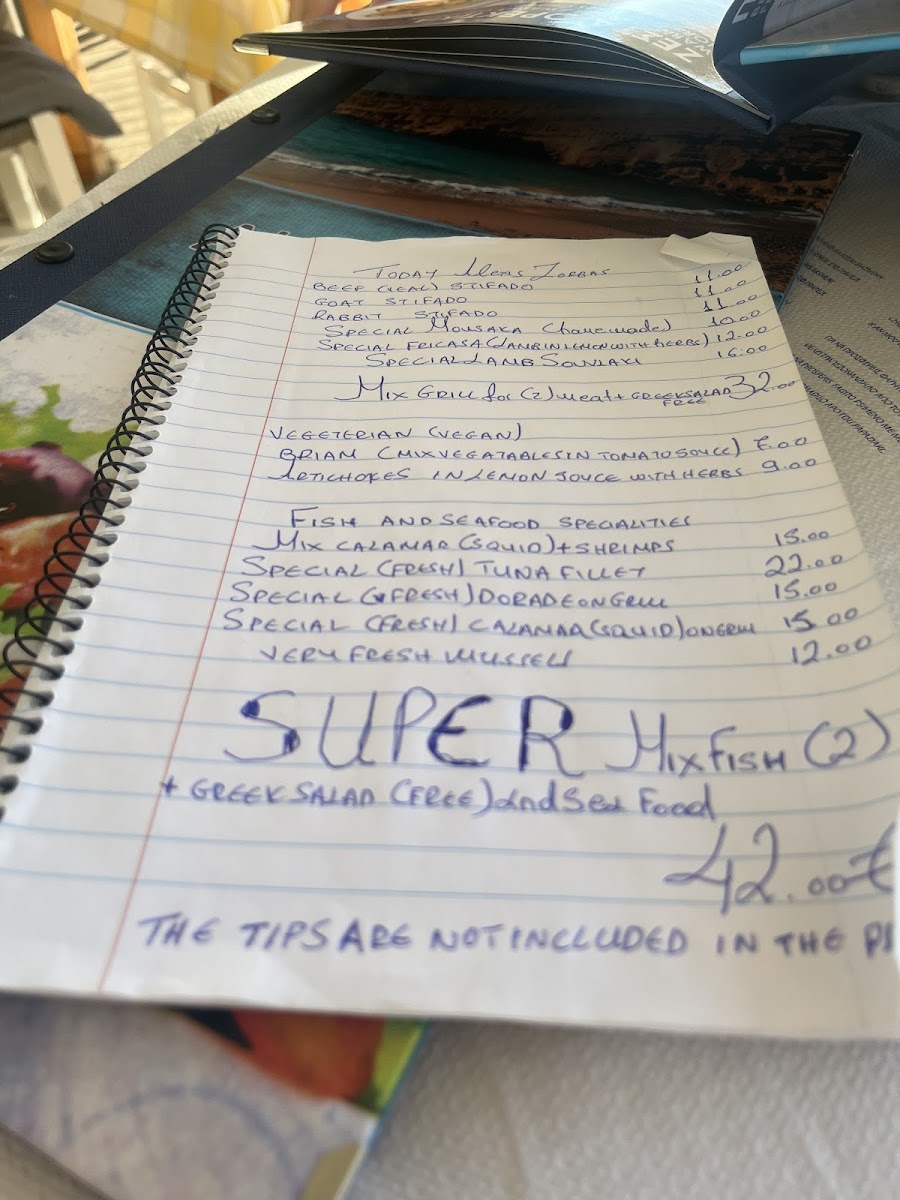 TODAY Menus ZORBAS
BEEF (VEAL) STIFADO 11.00
GOAT STIFADO 11.00
RABBIT STIFADO 11.00
SPECIAL MOUSAKA (homemade) 10.00
SPECIAL FRICASA (LAMB IN LEMON WITH HERBS) 12.00
SPECIAL LAMB SOUVLAKI 16.00
MIX GRILL for (2) meat + GREEK SALAD 32.00
FREE
VEGETERIAN (VEGAN)
BRIAM (MIX VEGATABLES IN TOMATO SOUCE)
ARTICHOKES IN LEMON SOUCE WITH HERBS 9.00
FISH AND SEAFOOD SPECIALITIES
MIX CALAMAR (SQUID) + SHRIMPS 15.00
SPECIAL (FRESH) TUNA FILLET 22.00
SPECIAL (FRESH) DORADE ON GRILL 15.00
SPECIAL (FRESH) CALAMAR (SQUID) ON GRILL 15.00
VERY FRESH MUSSELS 12.00
SUPER MIX FISH (2)
+ GREEK SALAD (FREE) and Sea Food
42.00€
THE TIPS ARE NOT INCLUDED IN THE